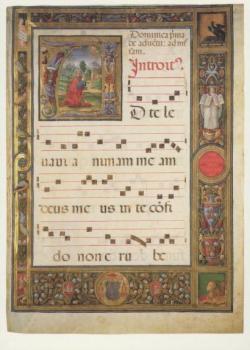 Dominica prima
de adventu: ad mis
sam.
Introit⁹.
D te le
navi a nimam me am
deus me us in te cōfi
do non e ru be